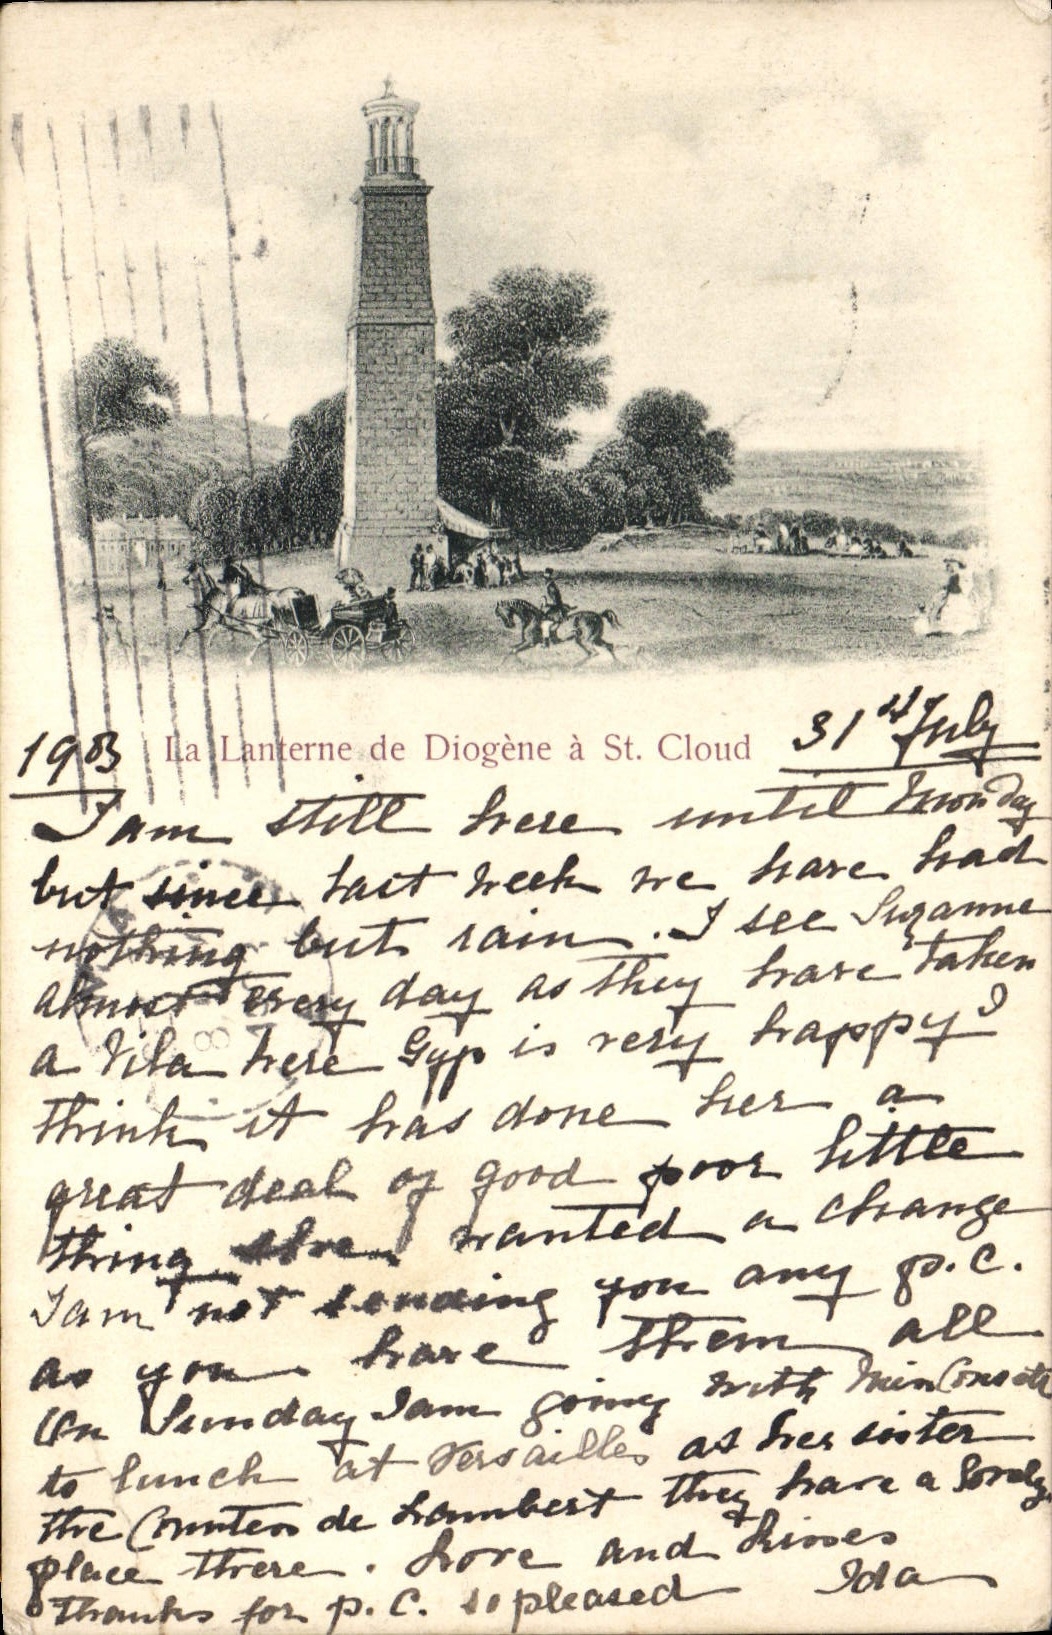 1903 La Lanterne de Diogène à St. Cloud 31st July
I am still here until Monday
but since last week we have had
nothing but rain. I see Suzanne
almost every day as they have taken
a Vila here Gyp is very happy I
think it has done her a
great deal of good poor little
thing she wanted a change
I am not sending you any p.c.
as you have them all
On Sunday I am going with
to lunch at Versailles as her sister
the Countess de Lambert they have a lovely
place there. Love and Kisses
thanks for p.c. so pleased Ida